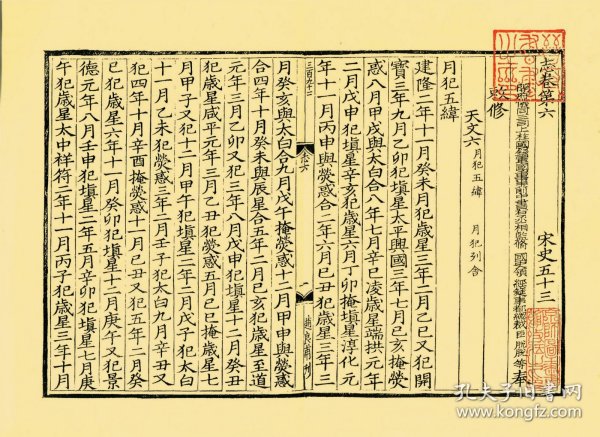 志卷第六　宋史五十三
開府儀同三司上柱國錄軍國重事前中書右丞相監修　國史領　經筵事都總裁臣脫脫等奉
敕修
天文六　月犯五緯　月犯列舍
月犯五緯
建隆二年十一月癸未月犯歲星三年二月乙巳又犯開
寶三年九月乙卯犯塡星太平興國三年七月己亥掩熒
惑八月甲戌與太白合八年七月辛巳凌歲星端拱元年
二月戊申犯塡星辛亥犯歲星六月丁卯掩塡星淳化元
年十一月丙申與熒惑合二年六月己丑犯歲星三年三
月癸亥與太白合九月戊午掩熒惑十二月甲申與熒惑
合四年十月癸未與辰星合五年二月己亥犯歲星至道
元年三月乙卯又犯三年八月戊申犯塡星十二月癸丑
犯歲星咸平元年三月乙丑犯熒惑五月己巳掩歲星七
月甲子又犯十二月甲午犯塡星二年二月戊子犯太白
十一月乙未犯熒惑三年二月壬子犯太白九月辛丑又
犯四年十月辛酉掩熒惑十一月己丑又犯五年二月癸
巳犯歲星六年十一月癸卯犯塡星十二月庚午又犯景
德元年八月壬申犯塡星二年五月辛卯犯塡星七月庚
午犯歲星太中祥符二年十一月丙子犯歲星三年十月
孔夫子旧书网
www.kongfz.com